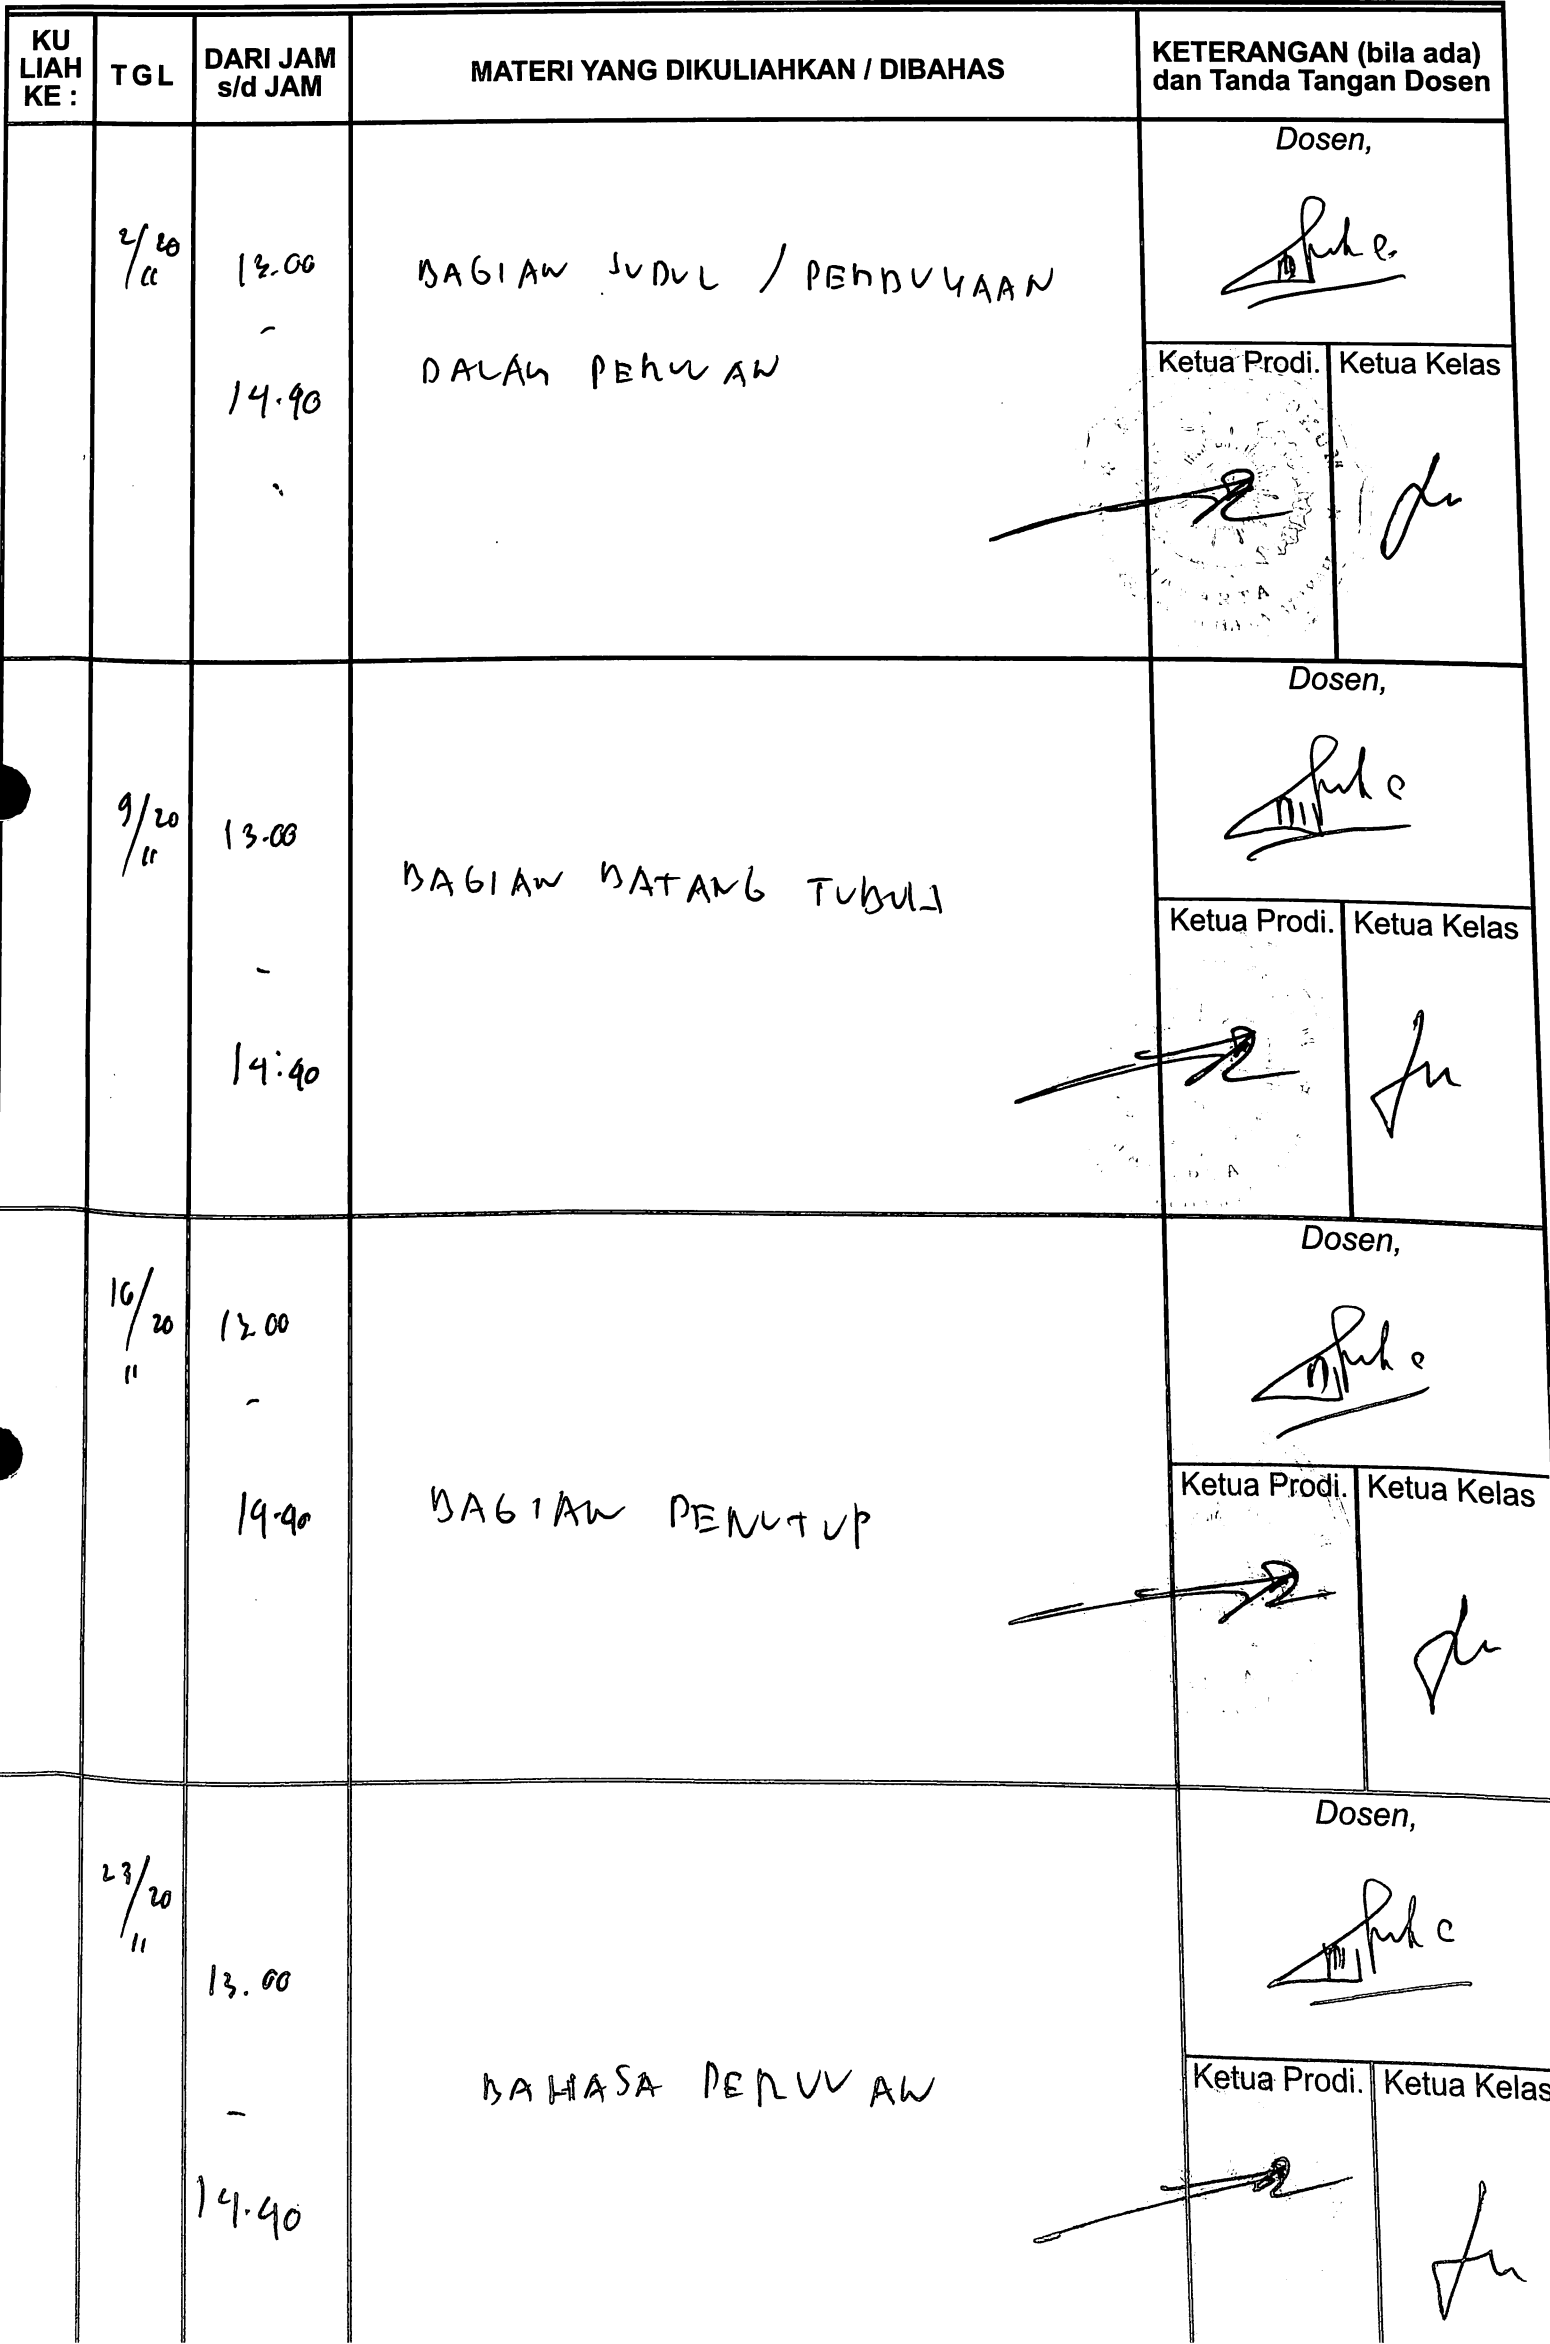 KU
LIAH
KE :
TGL
DARI JAM
s/d JAM
MATERI YANG DIKULIAHKAN / DIBAHAS
KETERANGAN (bila ada)
dan Tanda Tangan Dosen
2/20
11
13.00
-
14.40
BAGIAN JUDUL / PEMBUKAAN
DALAM PERUUAN
Dosen,
Ketua Prodi. Ketua Kelas
9/20
11
13.00
-
14:40
BAGIAN BATANG TUBUH
Dosen,
Ketua Prodi. Ketua Kelas
16/20
11
13.00
-
14.40
BAGIAN PENUTUP
Dosen,
Ketua Prodi. Ketua Kelas
23/20
11
13.00
-
14.40
BAHASA PERUUAN
Dosen,
Ketua Prodi. Ketua Kelas